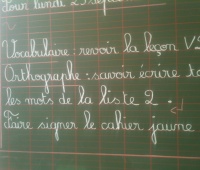 Pour lundi 23
Vocabulaire : revoir la leçon V
Orthographe : savoir écrire
les mots de la liste 2.
Faire signer le cahier jaune